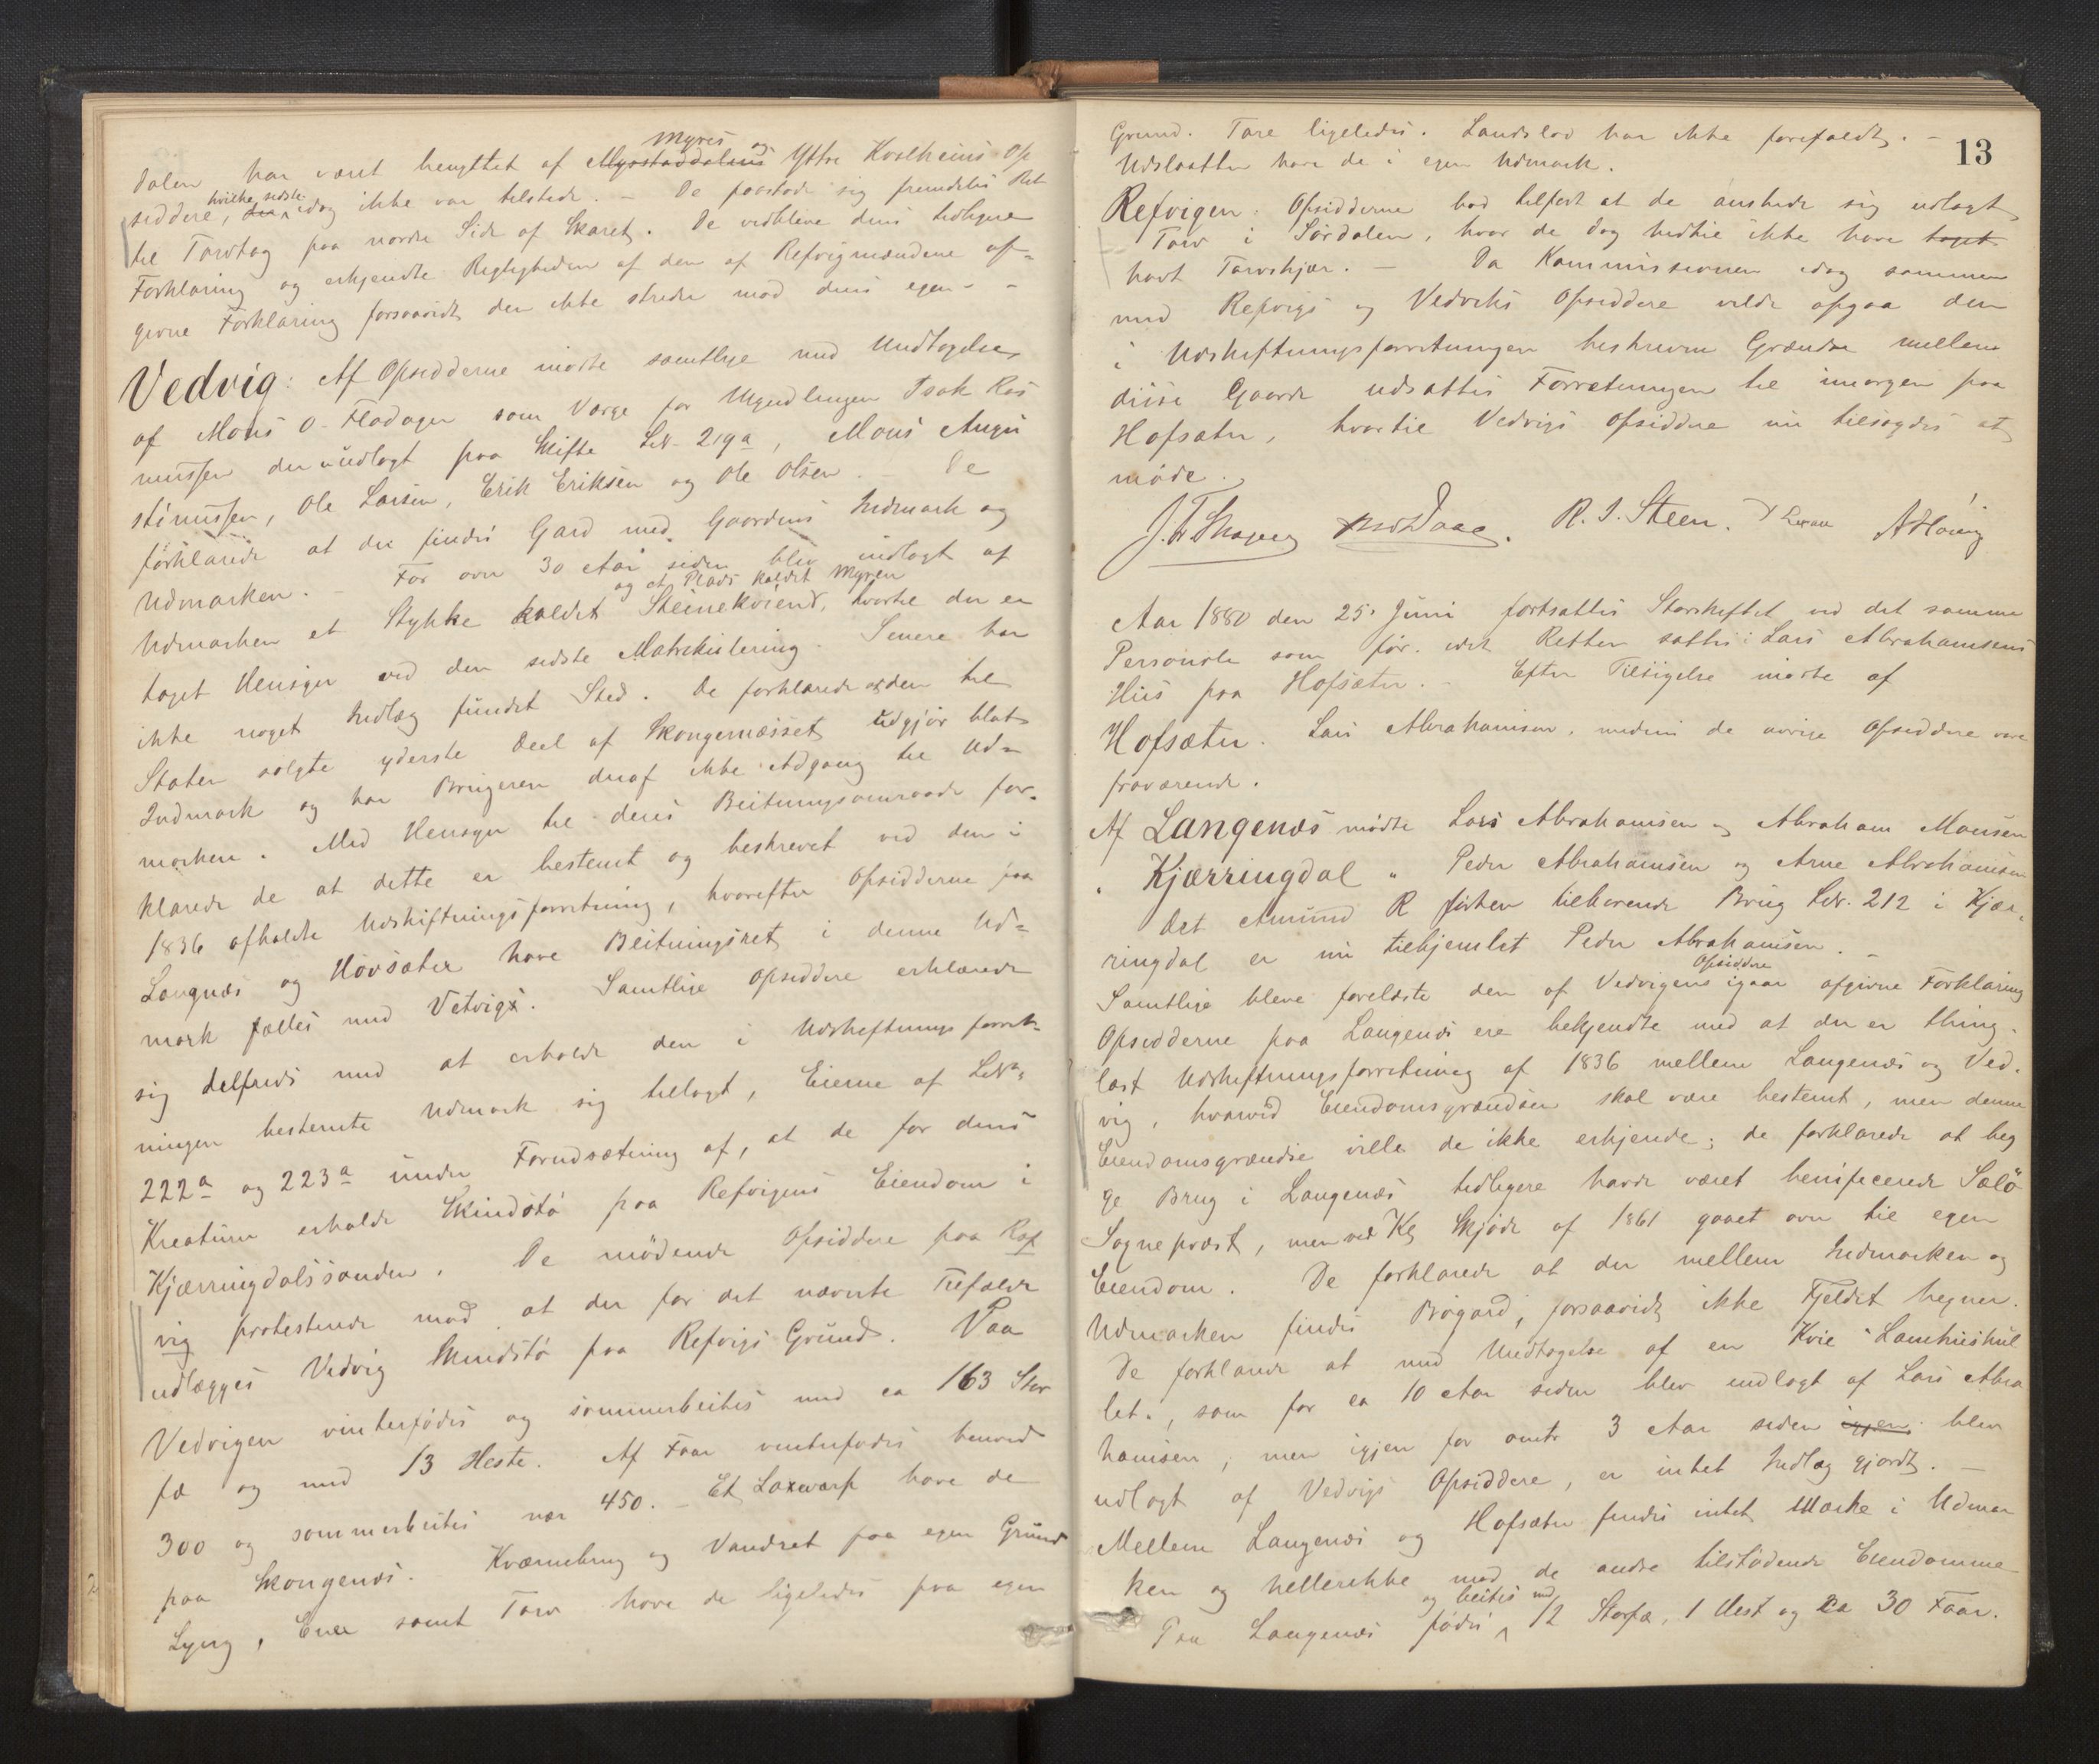 Myres og
Dalen har været benyttet af Myrstaddalens Yttre Kvalheims Op
hvilke sidste
siddere, der idag ikke var tilstede. — De paastode sig fremdeles Ret
til Torvtag paa nordre Side af Skaret. De vedbleve deres tidligere
Forklaring og erkjendte Rigtigheden af den af Refvigmændene af-
givne Forklaring forsaavidt den ikke strider mod deres egen. —
Vedvig: Af Opsidderne mødte samtlige med Undtagelse
af Mons O. Flodagen som Værge for Myndlingen Isak Ras
mussen der er udlagt paa Skifte LNr. 219a, Mons Augu
stinussen, Ole Larsen, Erik Eriksen og Ole Olsen. De
forklarede at der findes Gard med Gaardens Indmark og
Udmarken. — For over 30 Aar siden blev indlagt af
og et Plads kaldet Myren
Udmarken et Stykke kaldet Steinekviend, hvortil der er
taget Hensyn ved den sidste Matrikulering. Senere har
ikke noget Indlæg fundet Sted. De forklarede at den til
Staten solgte yderste Deel af Skongenæsset udgjør blot
Indmark og har Brugeren deraf ikke Adgang til Ud-
marken. Med Hensyn til deres Beitningsomraade for-
klarede de at dette er bestemt og beskrevet ved den i
1836 afholdte Udskiftningsforretning, hvorefter Opsidderne paa
Langnæs og Hovsæter have Beitningsret i denne Ud-
mark fælles med Vetvigs. Samtlige Opsiddere erklærede
sig tilfreds med at erholde den i Udskiftningsforret-
ningen bestemte Udmark sig tillagt, Eierne af LNr.
222a og 223a under Forudsætning af, at de for deres
Kreaturer erholde Skindstø paa Refvigens Eiendom i
Kjærringdalssanden. De mødende Opsiddere paa Ref
vig protesterede mod at der for det nævnte Tilfælde
udlægges Vedvig Skindstø paa Refvigs Grund. Paa
Vedvigen vinterfødes og sommerbeites med ca 163 Stor
fæ og med 13 Heste. Af Faar vinterfødes henved
300 og sommerbeites vær 450. — Et Laxevarp have de
paa Skongenæs. Kværnebrug og Vandret paa egen Grund
Lyng, Ener samt Torv have de ligeledes paa egen
13
Grund. Tare ligeledes. Landslod har ikke forefaldt. —
Udslaatter have de i egen Udmark.
Refvigen: Opsidderne bad tilført at de ønskede sig udlagt
Torv i Sørdalen, hvor de dog hidtil ikke have taget
havt Torvskjær. — Da Kommissionen idag sammen
med Refvigs og Vedviks Opsiddere vilde opgaa den
i Udskiftningsforretningen beskrevne Grændse mellem
disse Gaarde udsattes Forretningen til imorgen paa
Hofsæter, hvortil Vedvigs Opsiddere nu tilsagdes at
møde.
R. I. Steen.
Aar 1880 den 25. Juni fortsattes Storskiftet ved det samme
Personale som før. idet Retten sattes i Lars Abrahamsens
Hus paa Hofsæter. — Efter Tilsigelse mødte af
Hofsæter. Lars Abrahamsen, medens de øvrige Opsiddere vare
fraværende.
Af Langenæs mødte Lars Abrahamsen og Abraham Monsen
" Kjærringdal " Peder Abrahamsen og Arne Abrahamsen
Det Amund R forhen tilhørende Brug LNr. 212 i Kjær-
ringdal er nu tilhjemlet Peder Abrahamsen. —
Opsiddere
Samtlige bleve forelæste den af Vedvigens igaar afgivne Forklaring
Opsidderne paa Langenæs ere bekjendte med at der er thing-
læst Udskiftningsforretning af 1836 mellem Langenæs og Ved-
vig, hvorved Eiendomsgrændsen skal være bestemt, men denne
Eiendomsgrændse ville de ikke erkjende; de forklarede at beg
ge Brug i Langenæs tidligere havde været benificerede Sælø
Sognepræst, men ved Kg Skjøde af 1861 gaaet over til egen
Eiendom. De forklarede at der mellem Indmarken og
Udmarken findes Bøgard, forsaavidt ikke Fjeldet hegner.
De forklarede at med Undtagelse af en Kvie "Lamhushul
let", som for ca 10 Aar siden blev indlagt af Lars Abra
hamsen, men igjen for omtr 3 Aar siden igjen blev
udlagt af Vedvigs Opsiddere, er intet Indlæg gjordt. —
Mellem Langenæs og Hofsæter findes intet Mærke i Udmar
ken og heller ikke mod de andre tilstødende Eiendomme
og beites med
Paa Langenæs fødes 12 Storfæ, 1 Hest og ca 30 Faar.